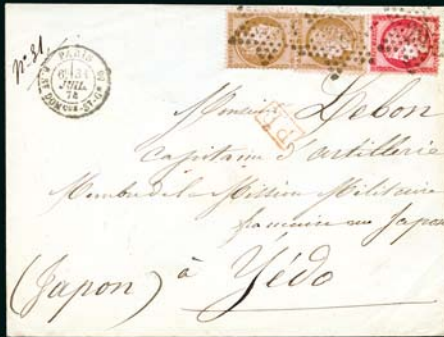 No 31
PARIS
6E 31
JUIL.
74
R. ST DOMque-ST-Gn 60
Monsieur Lebon
P.D.
Capitaine d'artillerie
Membre de la Mission Militaire
française au Japon
à Yédo
(Japon)